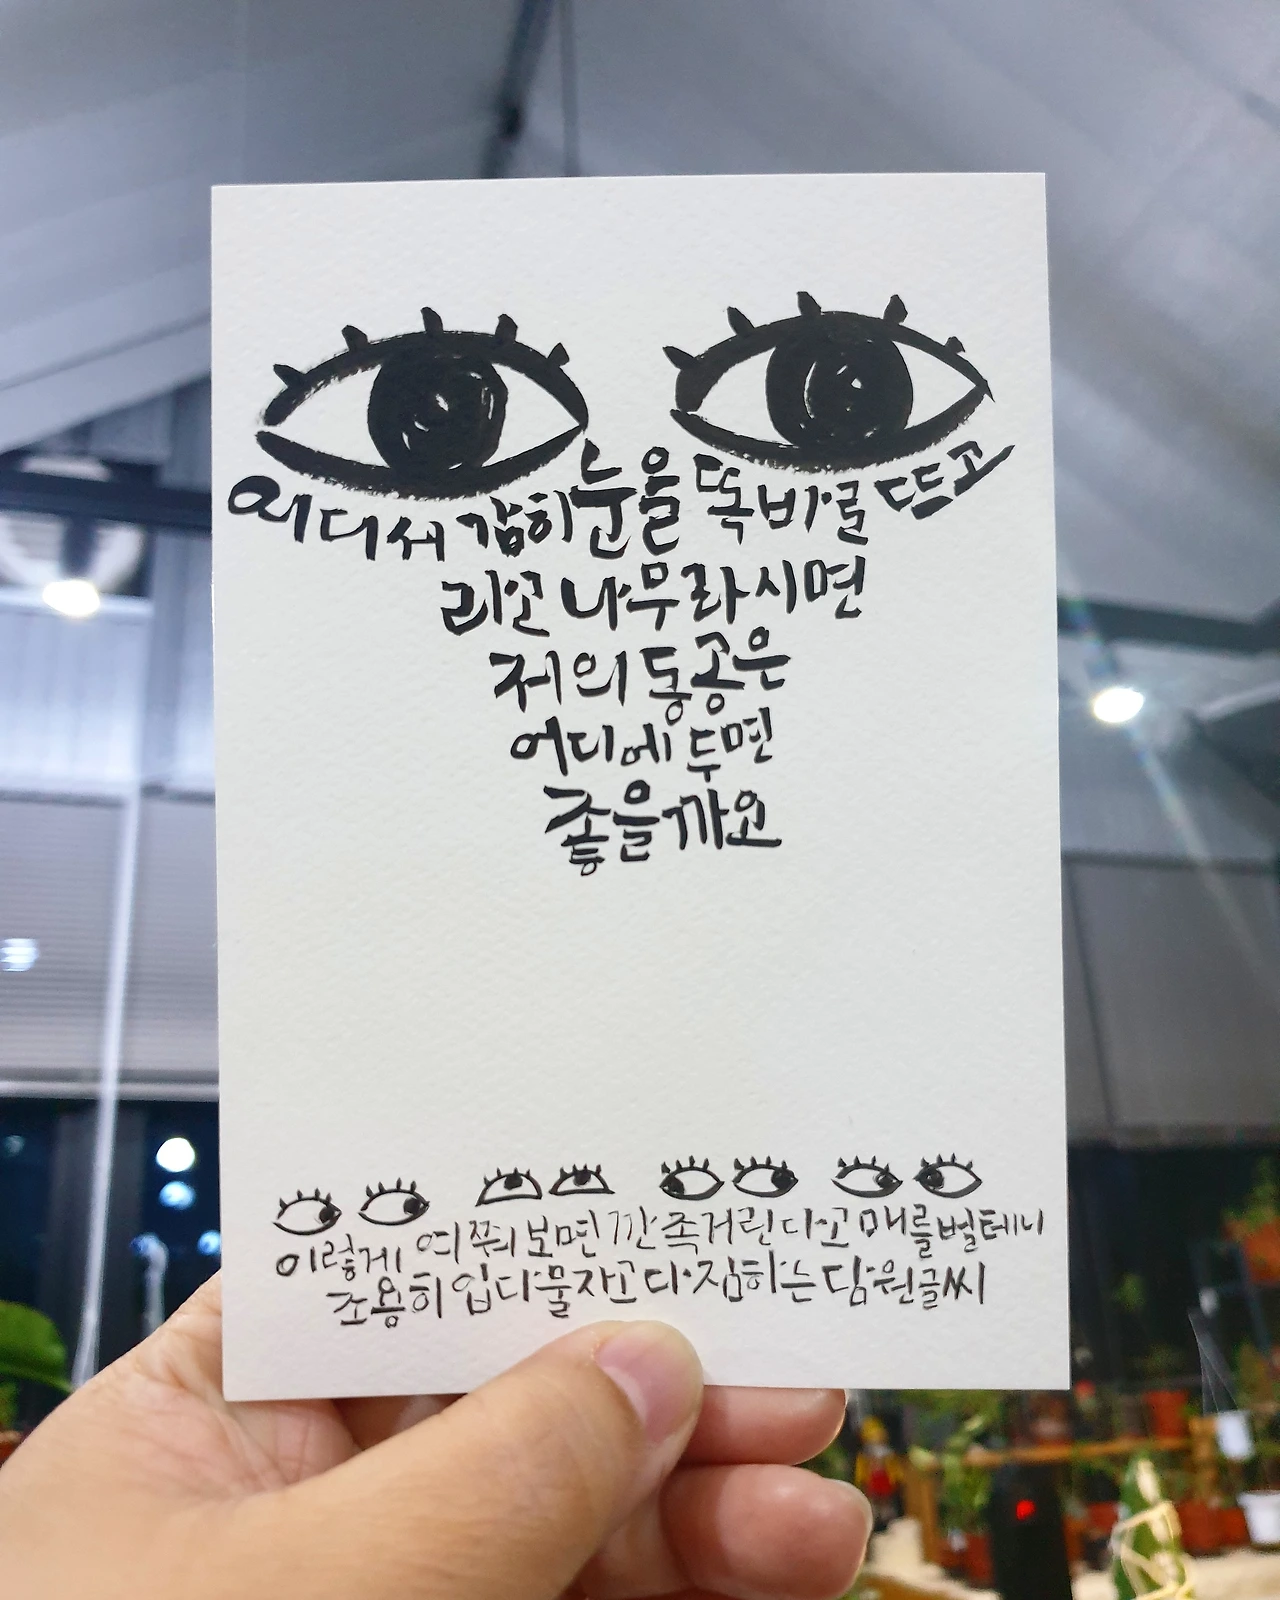 어디서 감히 눈을 똑바로 뜨고
라고 나무라시면
저의 동공은
어디에 두면
좋을까요
이렇게 여쭤보면 깐족거린다고 매를 벌테니
조용히 입 다물자고 다짐하는 담원글씨